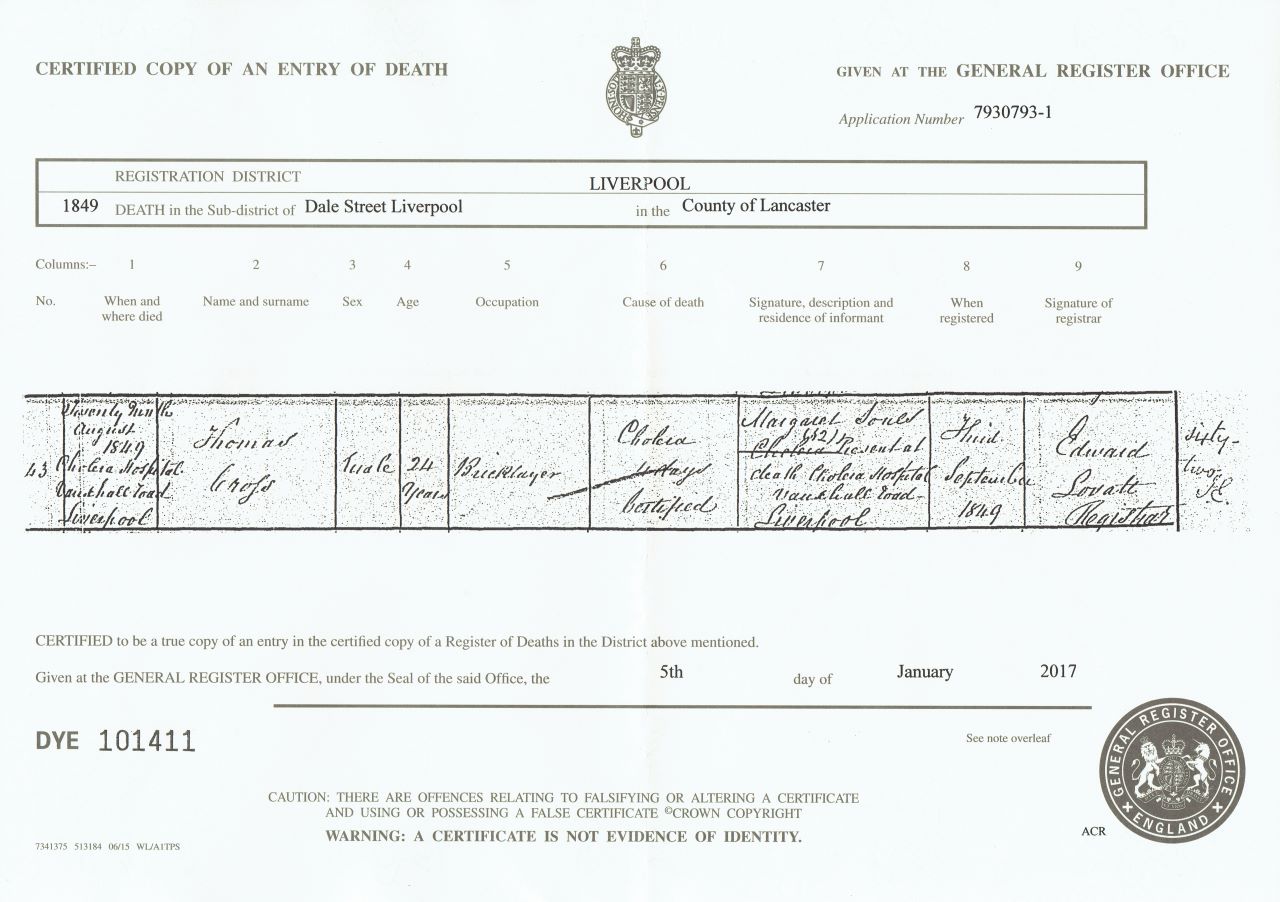 CERTIFIED COPY OF AN ENTRY OF DEATH
GIVEN AT THE GENERAL REGISTER OFFICE
Application Number 7930793-1
REGISTRATION DISTRICT LIVERPOOL
1849 DEATH in the Sub-district of Dale Street Liverpool in the County of Lancaster
Columns:– 1 2 3 4 5 6 7 8 9
No. When and where died Name and surname Sex Age Occupation Cause of death Signature, description and residence of informant When registered Signature of registrar
43
Twenty Ninth
August
1849
Cholera Hospital
Vauxhall Road
Liverpool
Thomas
Cross
Male
24
Years
Bricklayer
Cholera
Certified
Margaret
(52)
Present at
death Cholera Hospital
Vauxhall Road
Liverpool
Third
September
1849
Edward
Lovatt
Registrar
sixty-
two
CERTIFIED to be a true copy of an entry in the certified copy of a Register of Deaths in the District above mentioned.
Given at the GENERAL REGISTER OFFICE, under the Seal of the said Office, the 5th day of January 2017
DYE 101411
See note overleaf
GENERAL REGISTER OFFICE
ENGLAND
CAUTION: THERE ARE OFFENCES RELATING TO FALSIFYING OR ALTERING A CERTIFICATE
AND USING OR POSSESSING A FALSE CERTIFICATE ©CROWN COPYRIGHT
WARNING: A CERTIFICATE IS NOT EVIDENCE OF IDENTITY.
ACR
7341375 513184 06/15 WL/A1TPS